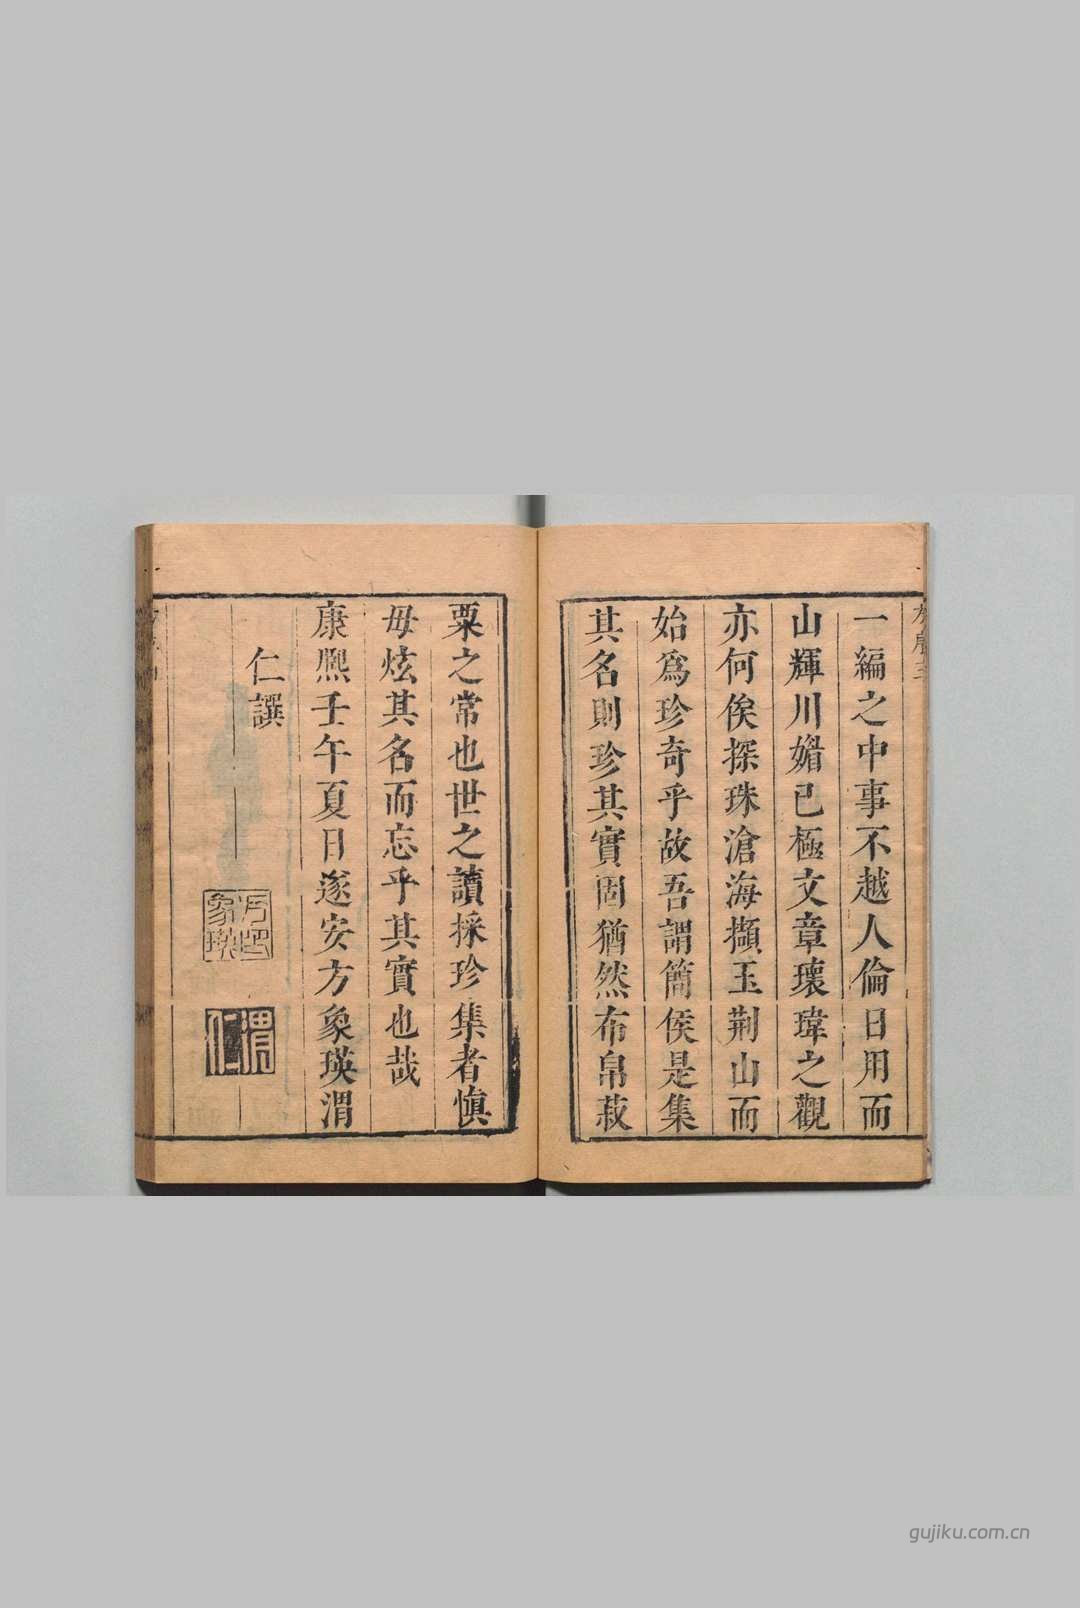 一編之中事不越人倫日用而
山輝川媚已極文章瓌瑋之觀
亦何俟探珠滄海擷玉荆山而
始爲珍奇乎故吾謂簡侯是集
其名則珍其實固猶然布帛菽
粟之常也世之讀採珍集者愼
毋炫其名而忘乎其實也哉
康熈壬午夏日遂安方象瑛渭
仁譔
方印象瑛
渭仁
gujiku.com.cn